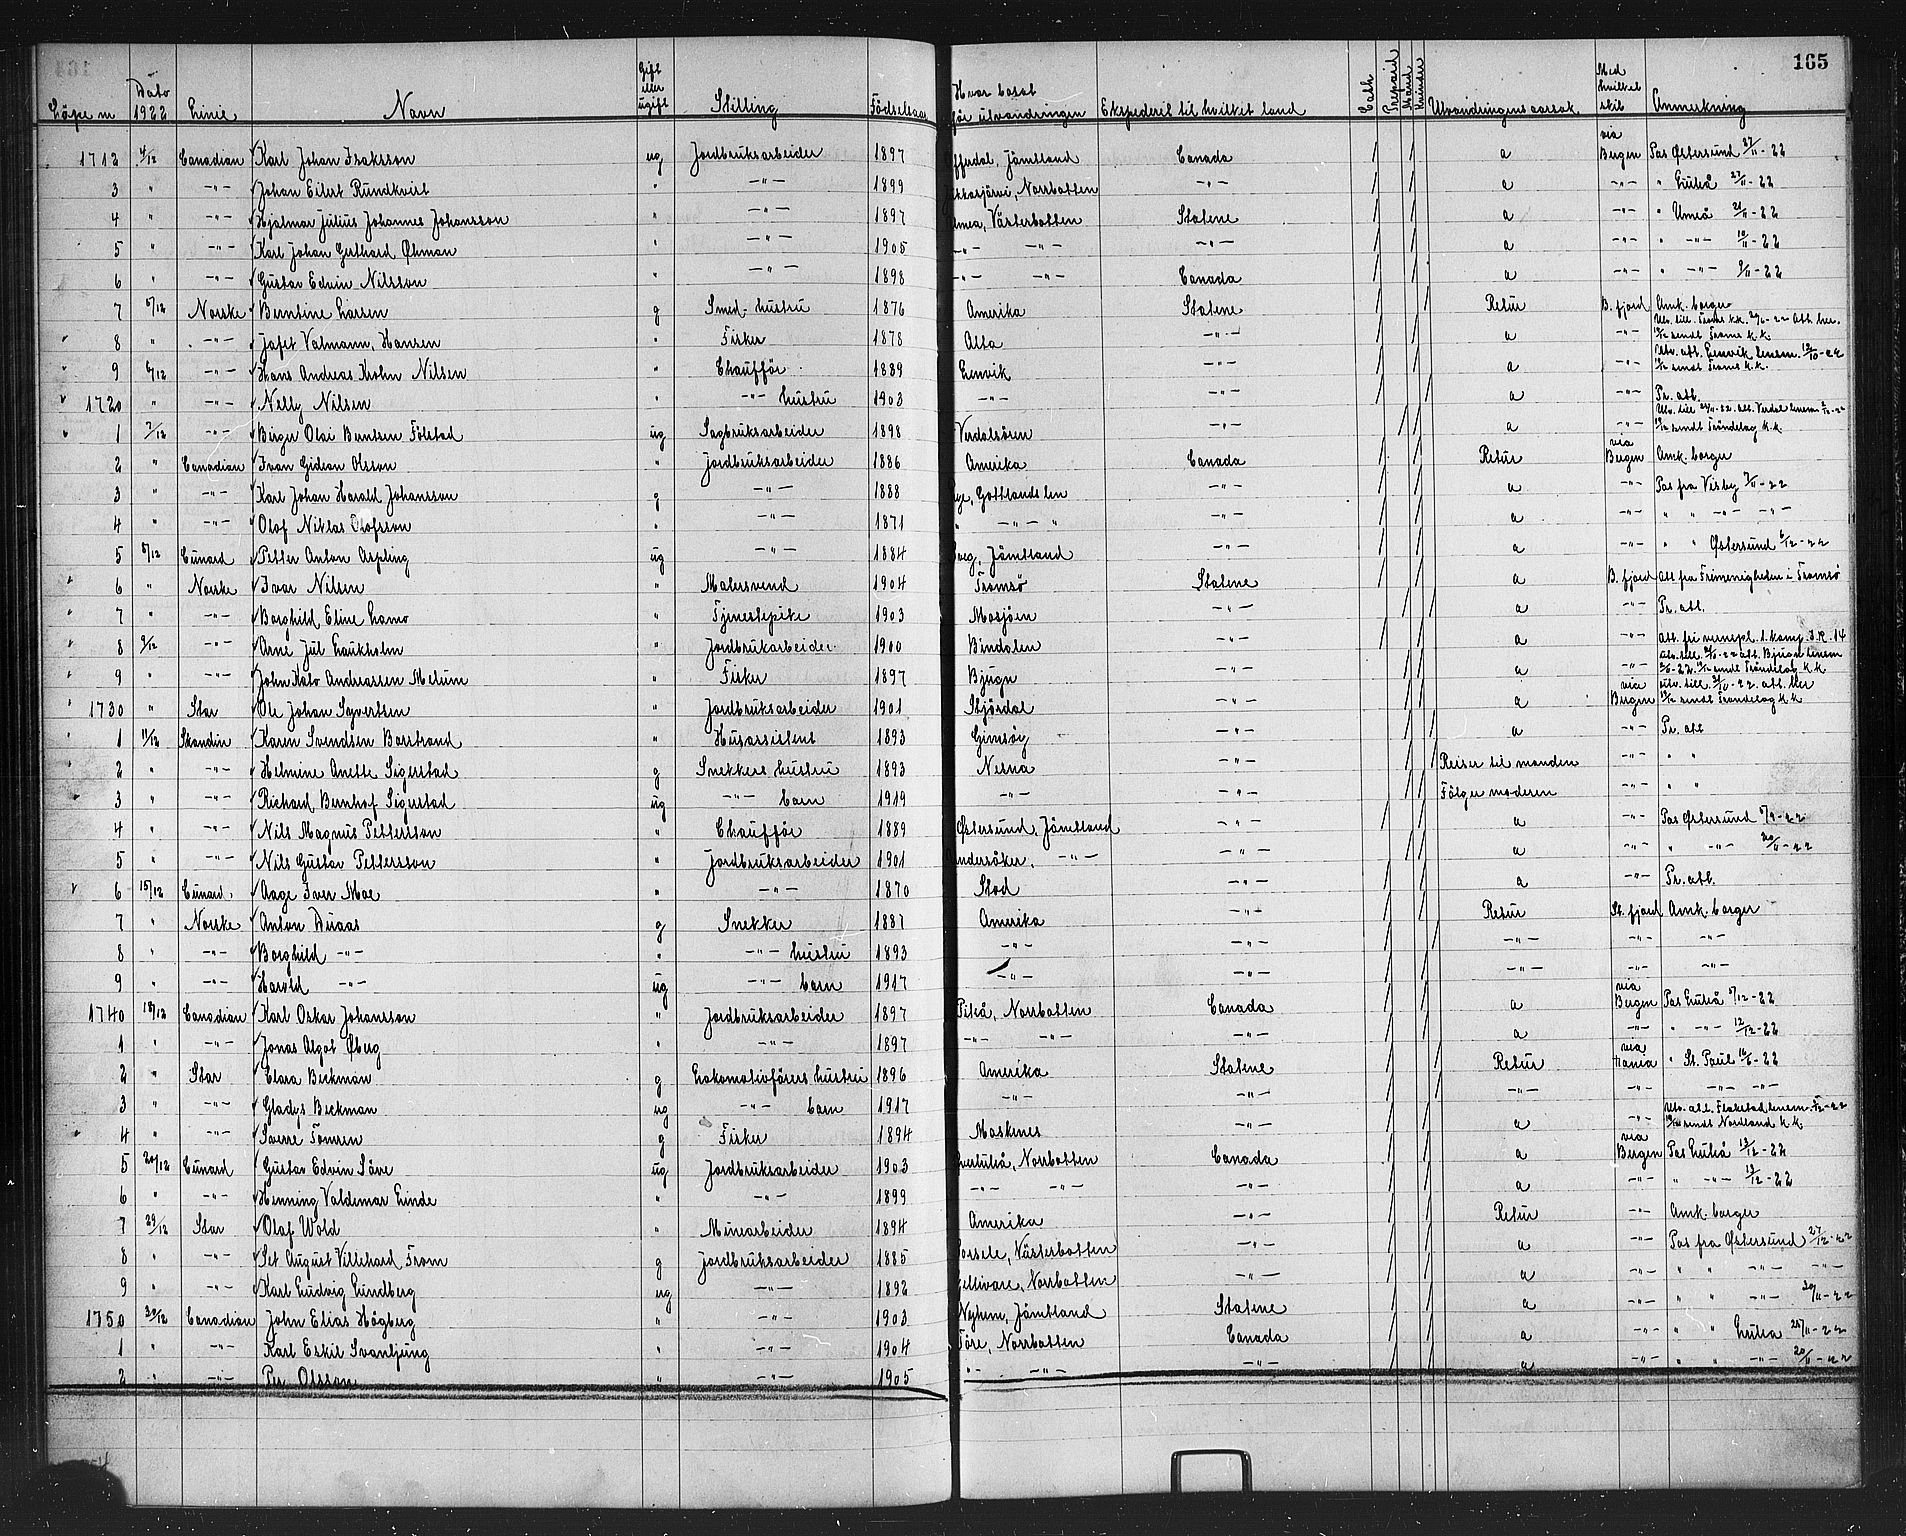 165
Löpe nr Dato 1922 Linie Navn Gift eller ugift Stilling Födselsaar Hvor bosat för utvandringen Ekspederet til hvilket land Cash Prepaid Mand Kvinde Utvandringens aarsak Med hvilket skib Anmerkning
1712 4/12 Canadian Karl Johan Isaksson ug Jordbruksarbeider 1897 Offerdal, Jämtland Canada a via Bergen Pas Østersund 27/11-22
3 " -"- Johan Eilert Rundkvist " -"- 1899 Norrbotten -"- a -"- " Luleå 27/11-22
4 " -"- Hjalmar Julius Johannes Johansson " -"- 1897 Umea, Västerbotten Statene a -"- " Umeå 21/11-22
5 " -"- Karl Johan Gerhard Öhman " -"- 1905 -"- -"- -"- a -"- " -"- 10/11-22
6 " -"- Gustav Edvin Nilsson " -"- 1898 -"- -"- Canada a -"- " -"- 9/11-22
7 5/12 Norske Berntine Larsen g Smed-hustru 1876 Amerika Statene Retur B. fjord Amk. borger
8 " -"- Jafet Valmann, Hansen " Fisker 1878 Alta -"- a -"- Utv. till. Troms k.k. 29/6-22 Att. her. 12/12 sendt Troms k.k.
9 6/12 -"- Hans Andreas Krohn Nilsen " Chaufför 1889 Lenvik -"- a -"- Utv. att. Lenvik lensm. 12/10-22 12/12 sendt Troms k.k.
1720 " -"- Nelly Nilsen " -"- hustru 1903 -"- -"- a Pr. att.
1 7/12 -"- Birger Olai Berntsen Fölstad ug Sagbruksarbeider 1898 Verdalsören -"- a -"- Utv. till. 24/11-22. att. Verdal lensm. 2/12-22 12/12 sendt Tröndelag k.k.
2 " Canadian Ivan Gideon Olsson " Jordbruksarbeider 1886 Amerika Canada Retur via Bergen Amk. borger
3 " -"- Karl Johan Harald Johansson g -"- 1888 Gottlands len -"- a -"- Pas fra Visby 7/11-22
4 " -"- Olof Niklas Olofsson " -"- 1871 " -"- " -"- a -"- " " -"- -"-
5 8/12 Cunard Petter Anton Aspling ug -"- 1884 Jämtland -"- a -"- " " Östersund 2/12-22
6 " Norske Ivar Nilsen " Malersvend 1904 Tromsö Statene a B. fjord att fra Frimenigheden i Tromsö
7 " -"- Borghild Eline Lamo " Tjenestepike 1903 Mosjöen -"- a -"- Pr. att.
8 9/12 -"- Arne Jul Laukholm " Jordbrukarbeider 1900 Bindalen -"- a -"- Att. fri vernepl. 1. komp. I.R. 14
9 " -"- John Kato Andreassen Melum " Fisker 1897 Bjugn -"- a -"- Utv. till. 21/11-22 att. Bjugn lensm 12/12 sendt Tröndelag k.k
1730 " Star Ole Johan Syvertsen " Jordbruksarbeider 1901 Stjördal -"- a via Bergen utv. till. 21/11-22. att. her 12/12 sendt Tröndelag k.k
1 11/12 Skandin Karen Svendsen Barstrand " Husassistent 1893 Gimsöy -"- a -"- Pr. att
2 " -"- Helmine Anette Sigerstad g Snekkers hustru 1893 Nesna -"- Reiser til manden -"- " "
3 " -"- Richard Bernhof Sigerstad ug -"- barn 1919 -"- -"- Fölger moderen -"- " "
4 " -"- Nils Magnus Pettersson " Chaufför 1889 Østersund, Jämtland -"- a -"- Pas Østersund 8/9-22
5 " -"- Nils Gustav Pettersson " Jordbruksarbeider 1901 Undersåker, -"- -"- a -"- " -"- 20/11-22
6 15/12 Cunard Aage Iver Moe " -"- 1870 Stod -"- a -"- Pr. att.
7 " Norske Anton Duaas g Snekker 1887 Amerika -"- Retur St. fjord Amk. borger
8 " -"- Borghild -"- " -"- hustru 1893 -"- -"- -"- -"- -"-
9 " -"- Harold -"- ug -"- barn 1917 -"- -"- -"- -"- -"-
1740 18/12 Canadian Karl Oskar Johansson " Jordbruksarbeider 1897 Piteå, Norrbotten Canada a via Bergen Pas Luleå 5/12-22
1 " -"- Jonas Algot Öberg " -"- 1897 -"- -"- -"- a -"- " -"- 12/12-22
2 " Star Clara Beckman g Lokomotivförers hustru 1896 Amerika Statene Retur via " St. Paul 16/6-22
3 " -"- Gladys Beckman ug -"- barn 1917 -"- -"- -"- -"- -"- -"-
4 " -"- Sverre Tömren g Fisker 1894 Mosknes -"- a -"- Utv. att. Flakstad lensm. 5/12-22 sendt Nordland k.k.
5 20/12 Cunard Gustav Edvin Säve ug Jordbruksarbeider 1903 Norrbotten Canada a via Bergen Pas Luleå 13/12-22
6 " -"- Henning Valdemar Linde " -"- 1899 -"- -"- -"- a -"- " -"- 13/12-22
7 29/12 Star Olaf Wold " Minearbeider 1894 Amerika -"- Retur -"- Amk. borger
8 " -"- Set August Villehard From g Jordbruksarbeider 1885 Dorsele, Västerbotten -"- a -"- Pas fra Østersund 27/12-22
9 " -"- Karl Ludvig Lindberg ug -"- 1892 Gellivare, Norrbotten -"- a -"- " " -"- -"-
1750 30/12 Canadian John Elias Högberg " -"- 1903 Nyhem, Jämtland Statene a -"- " " -"- 20/11-22
1 " -"- Karl Eskil Svanljung " -"- 1904 Töre, Norrbotten Canada a -"- " " Lulea 28/11-22
2 " -"- Per Olsson " -"- 1905 -"- -"- -"- a -"- " " -"- 20/11-22